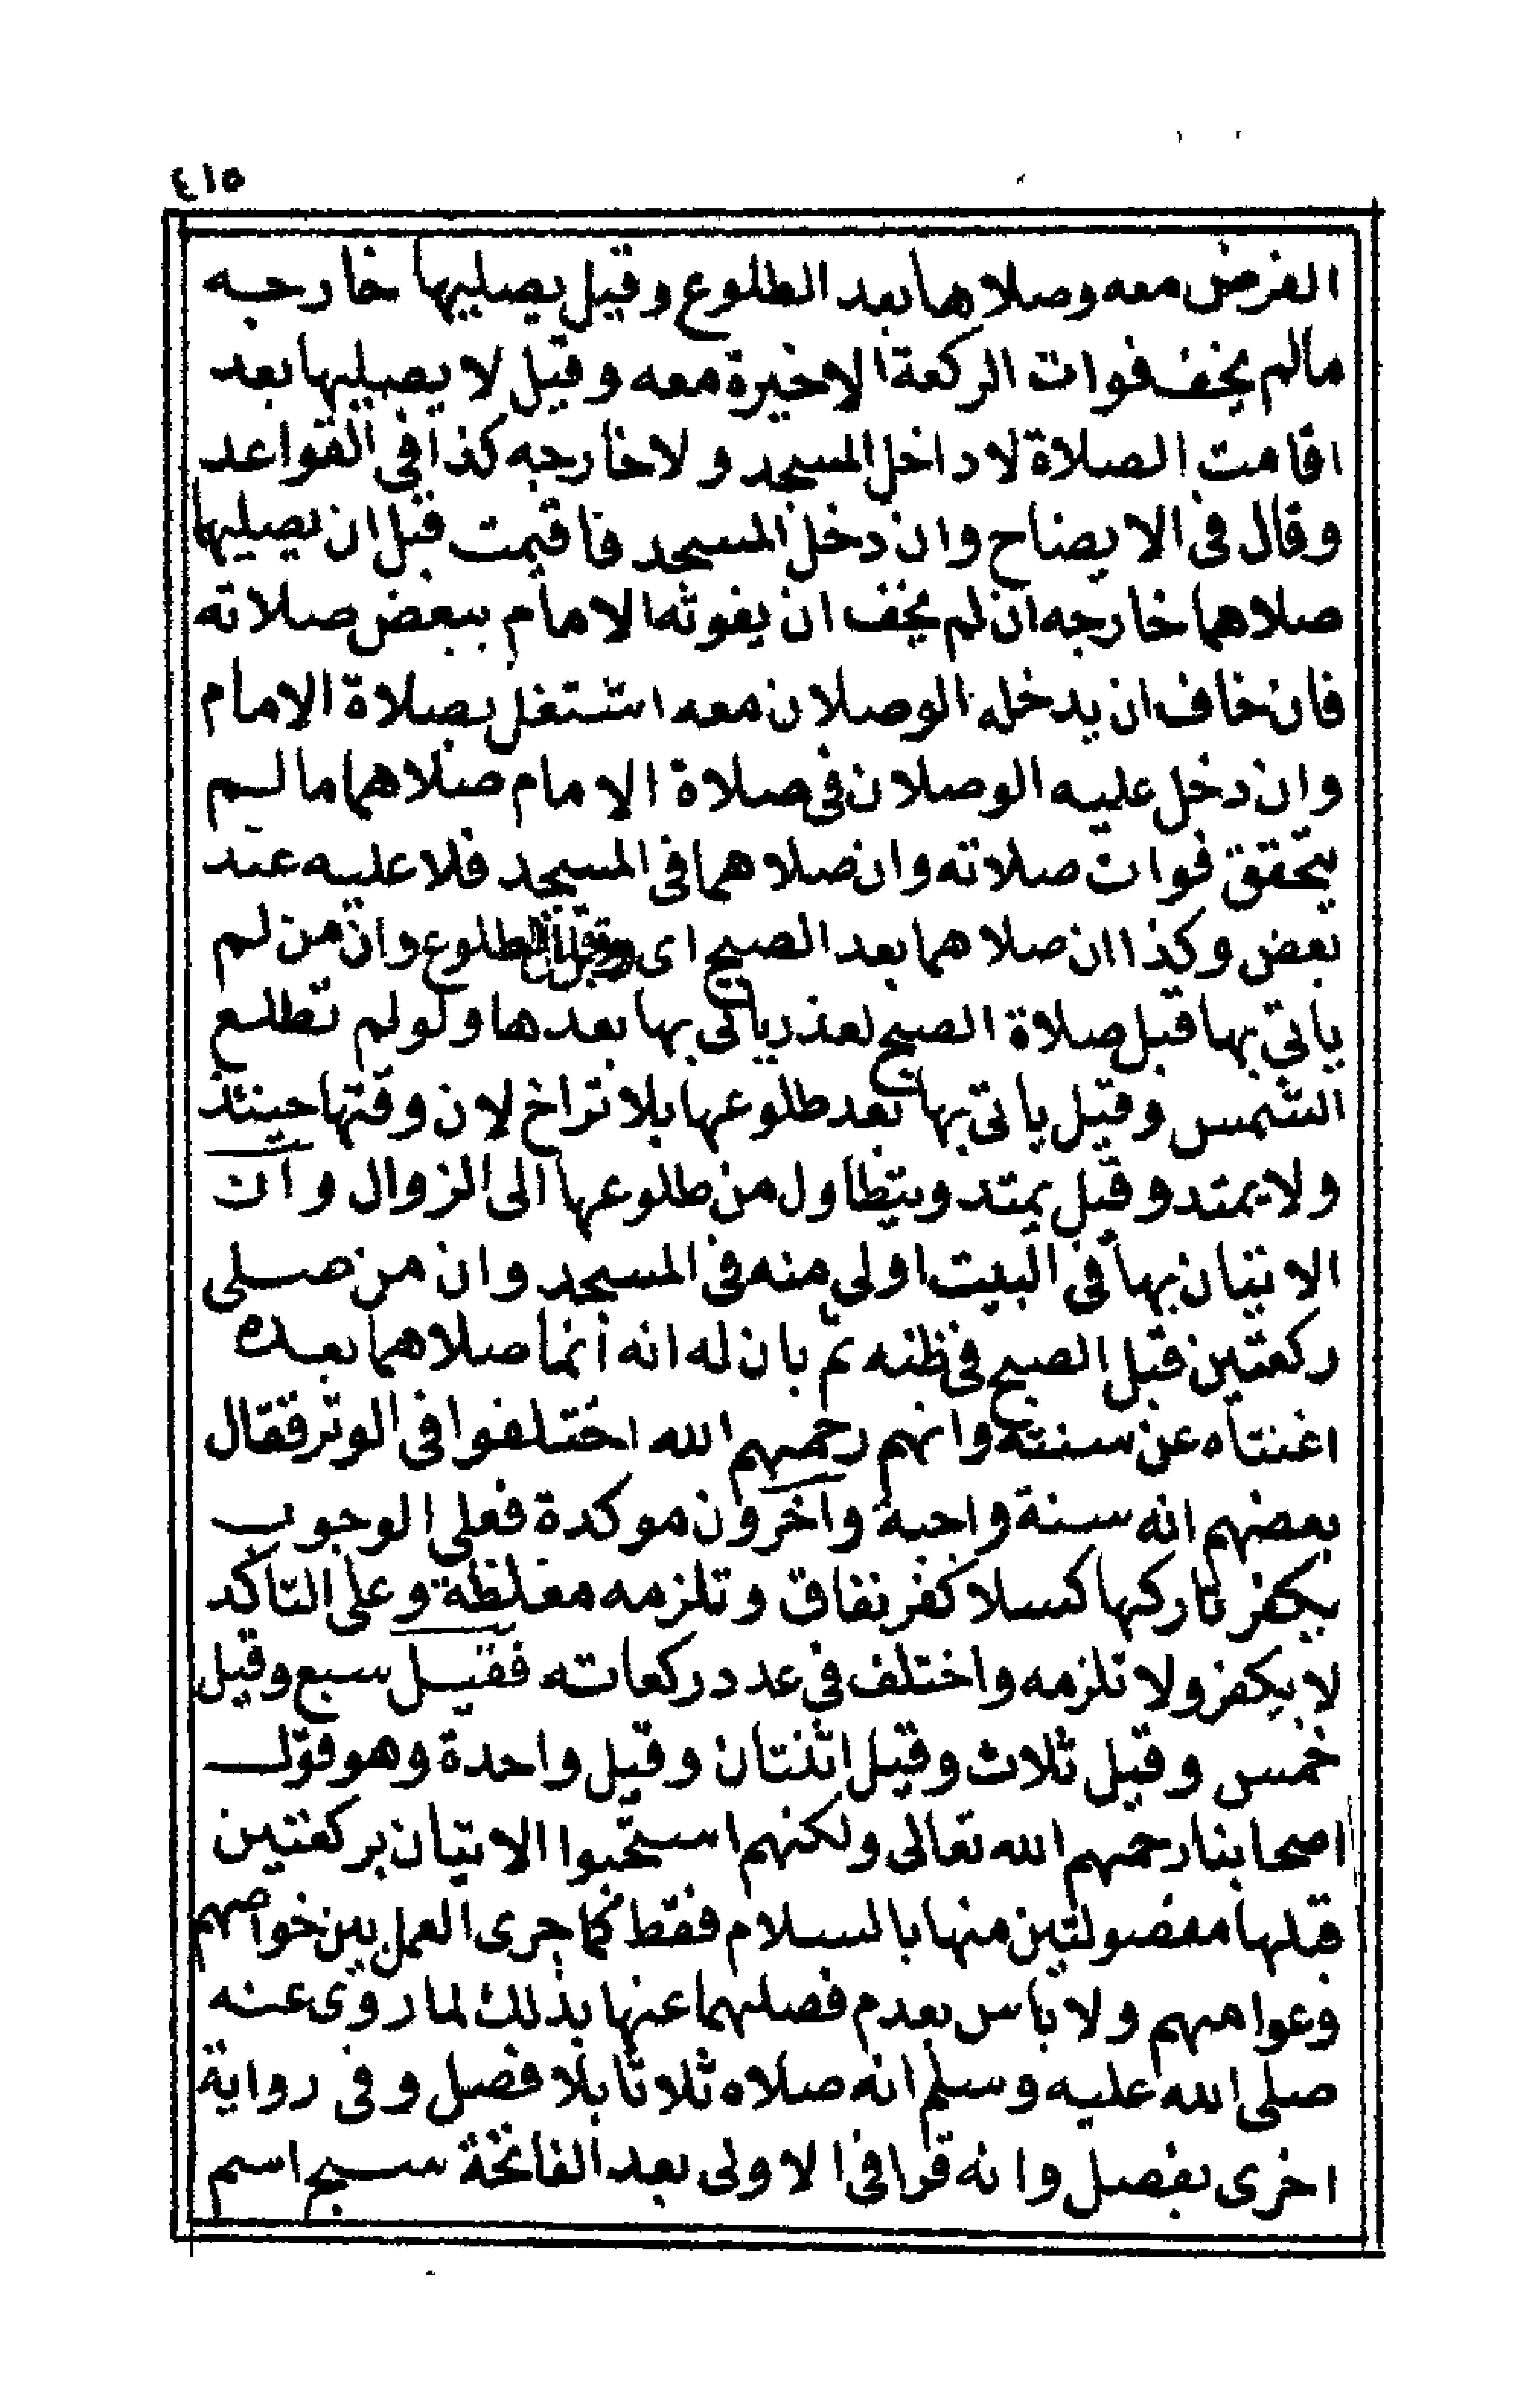 ٤١٥
الفرض معه وصلاها بعد الطلوع وقيل يصليها خارجه
مالم يخف فوات الركعة الاخيرة معه وقيل لا يصليها بعد
اقامت الصلاة لا داخل المسجد ولا خارجه كذا في القواعد
وقال في الايضاح وان دخل المسجد فاقيمت قبل ان يصليها
صلاهما خارجه ان لم يخف ان يفوته الامام ببعض صلاته
فان خاف ان يدخله الوصلان معه اشتغل بصلاة الامام
وان دخل عليه الوصلان في صلاة الامام صلاهما ما لم
يتحقق فوات صلاته وان صلاهما في المسجد فلا عليه عند
بعض وكذا ان صلاهما بعد الصبح اى وقبل الطلوع وان من لم
ياتي بها قبل صلاة الصبح لعذر ياتى بها بعدها ولو لم تطلع
الشمس وقيل ياتى بها بعد طلوعها بلا تراخ لان وقتها حينئذ
ولا يمتد وقيل يمتد ويتطاول من طلوعها الى الزوال وان
الاتيان بها في البيت اولى منه في المسجد وان من صلى
ركعتين قبل الصبح في ظنه ثم بان له انه انما صلاهما بعده
اغنتاه عن سنته وانهم رحمهم الله اختلفوا في الوتر فقال
بعضهم انه سنة واجبة واخرون موكدة فعلى الوجوب
يكفر تاركها كسلا كفر نفاق وتلزمه مغلظة وعلى التاكد
لا يكفر ولا تلزمه واختلف في عدد ركعاته فقيل سبع وقيل
خمس وقيل ثلاث وقيل اثنتان وقيل واحدة وهو قول
اصحابنا رحمهم الله تعالى ولكنهم استحبوا الاتيان بركعتين
قبلها مفصولتين منها بالسلام فقط كما جرى العمل بين خواصهم
وعوامهم ولا باس بعدم فصلهما عنها بذلك لما روى عنه
صلى الله عليه وسلم انه صلاه ثلاثا بلا فصل وفى رواية
اخرى بفصل وانه قرا في الاولى بعد الفاتحة سبح اسم